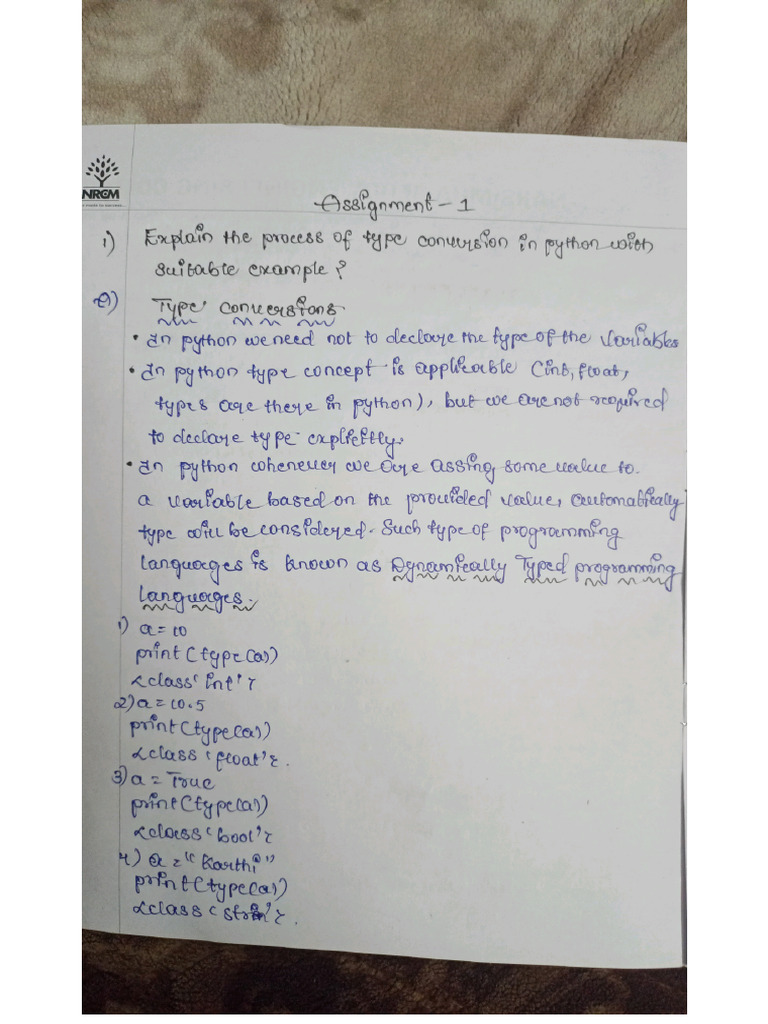 NRCM
Assignment - 1
1) Explain the process of type conversion in python with
suitable example?
Type conversions
• In python we need not to declare the type of the variables
• In python type concept is applicable (int, float,
types are there in python), but we are not required
to declare type explicitly.
• In python whenever we are assing some value to.
a variable based on the provided value, automatically
type will be considered. Such type of programming
languages is known as Dynamically Typed programming
languages.
1) a = 10
print(type(a))
<class 'int'>
2) a = 10.5
print(type(a))
<class 'float'>.
3) a = True
print(type(a))
<class 'bool'>
4) a = "Karthi"
print(type(a))
<class '